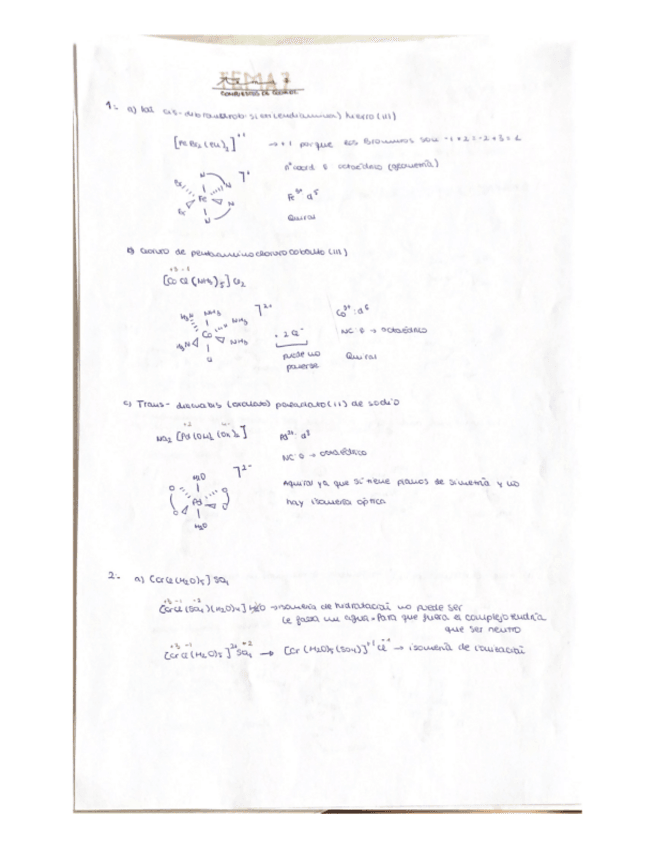 TEMA 7
COMPUESTOS DE COORD.
1.- a) cis-
[FeBr2(en)2]+1 → +1 porque los Bromuros son -1 · 2 = -2 + 3 = 1
nº coord 6 octaédrico (geometría)
Fe3+ d5
Quiral
b) Cloruro de pentaamino cloruro cobalto (III)
+3 -1
[CoCl(NH3)5]Cl2
Co3+: d6
NC 6 → octaédrico
+ 2Cl-
puede no ponerse
Quiral
c) Trans- diacuabis (oxalato) paladato (II) de sodio
Na2 [Pd(OH2)2(ox)2]
Pd2+: d8
NC 6 → octaédrico
Aquiral ya que sí tiene planos de simetría y no
hay isomería óptica
2.- a) [CrCl(H2O)5]SO4
+3 -1 -2
[CrCl(SO4)(H2O)4]H2O → isomería de hidratación no puede ser
le falta un agua. Para que fuera el complejo tendría
que ser neutro
+3 -1
[CrCl(H2O)5]2+ SO4 → [Cr(H2O)5(SO4)]+1 Cl → isomería de ionización